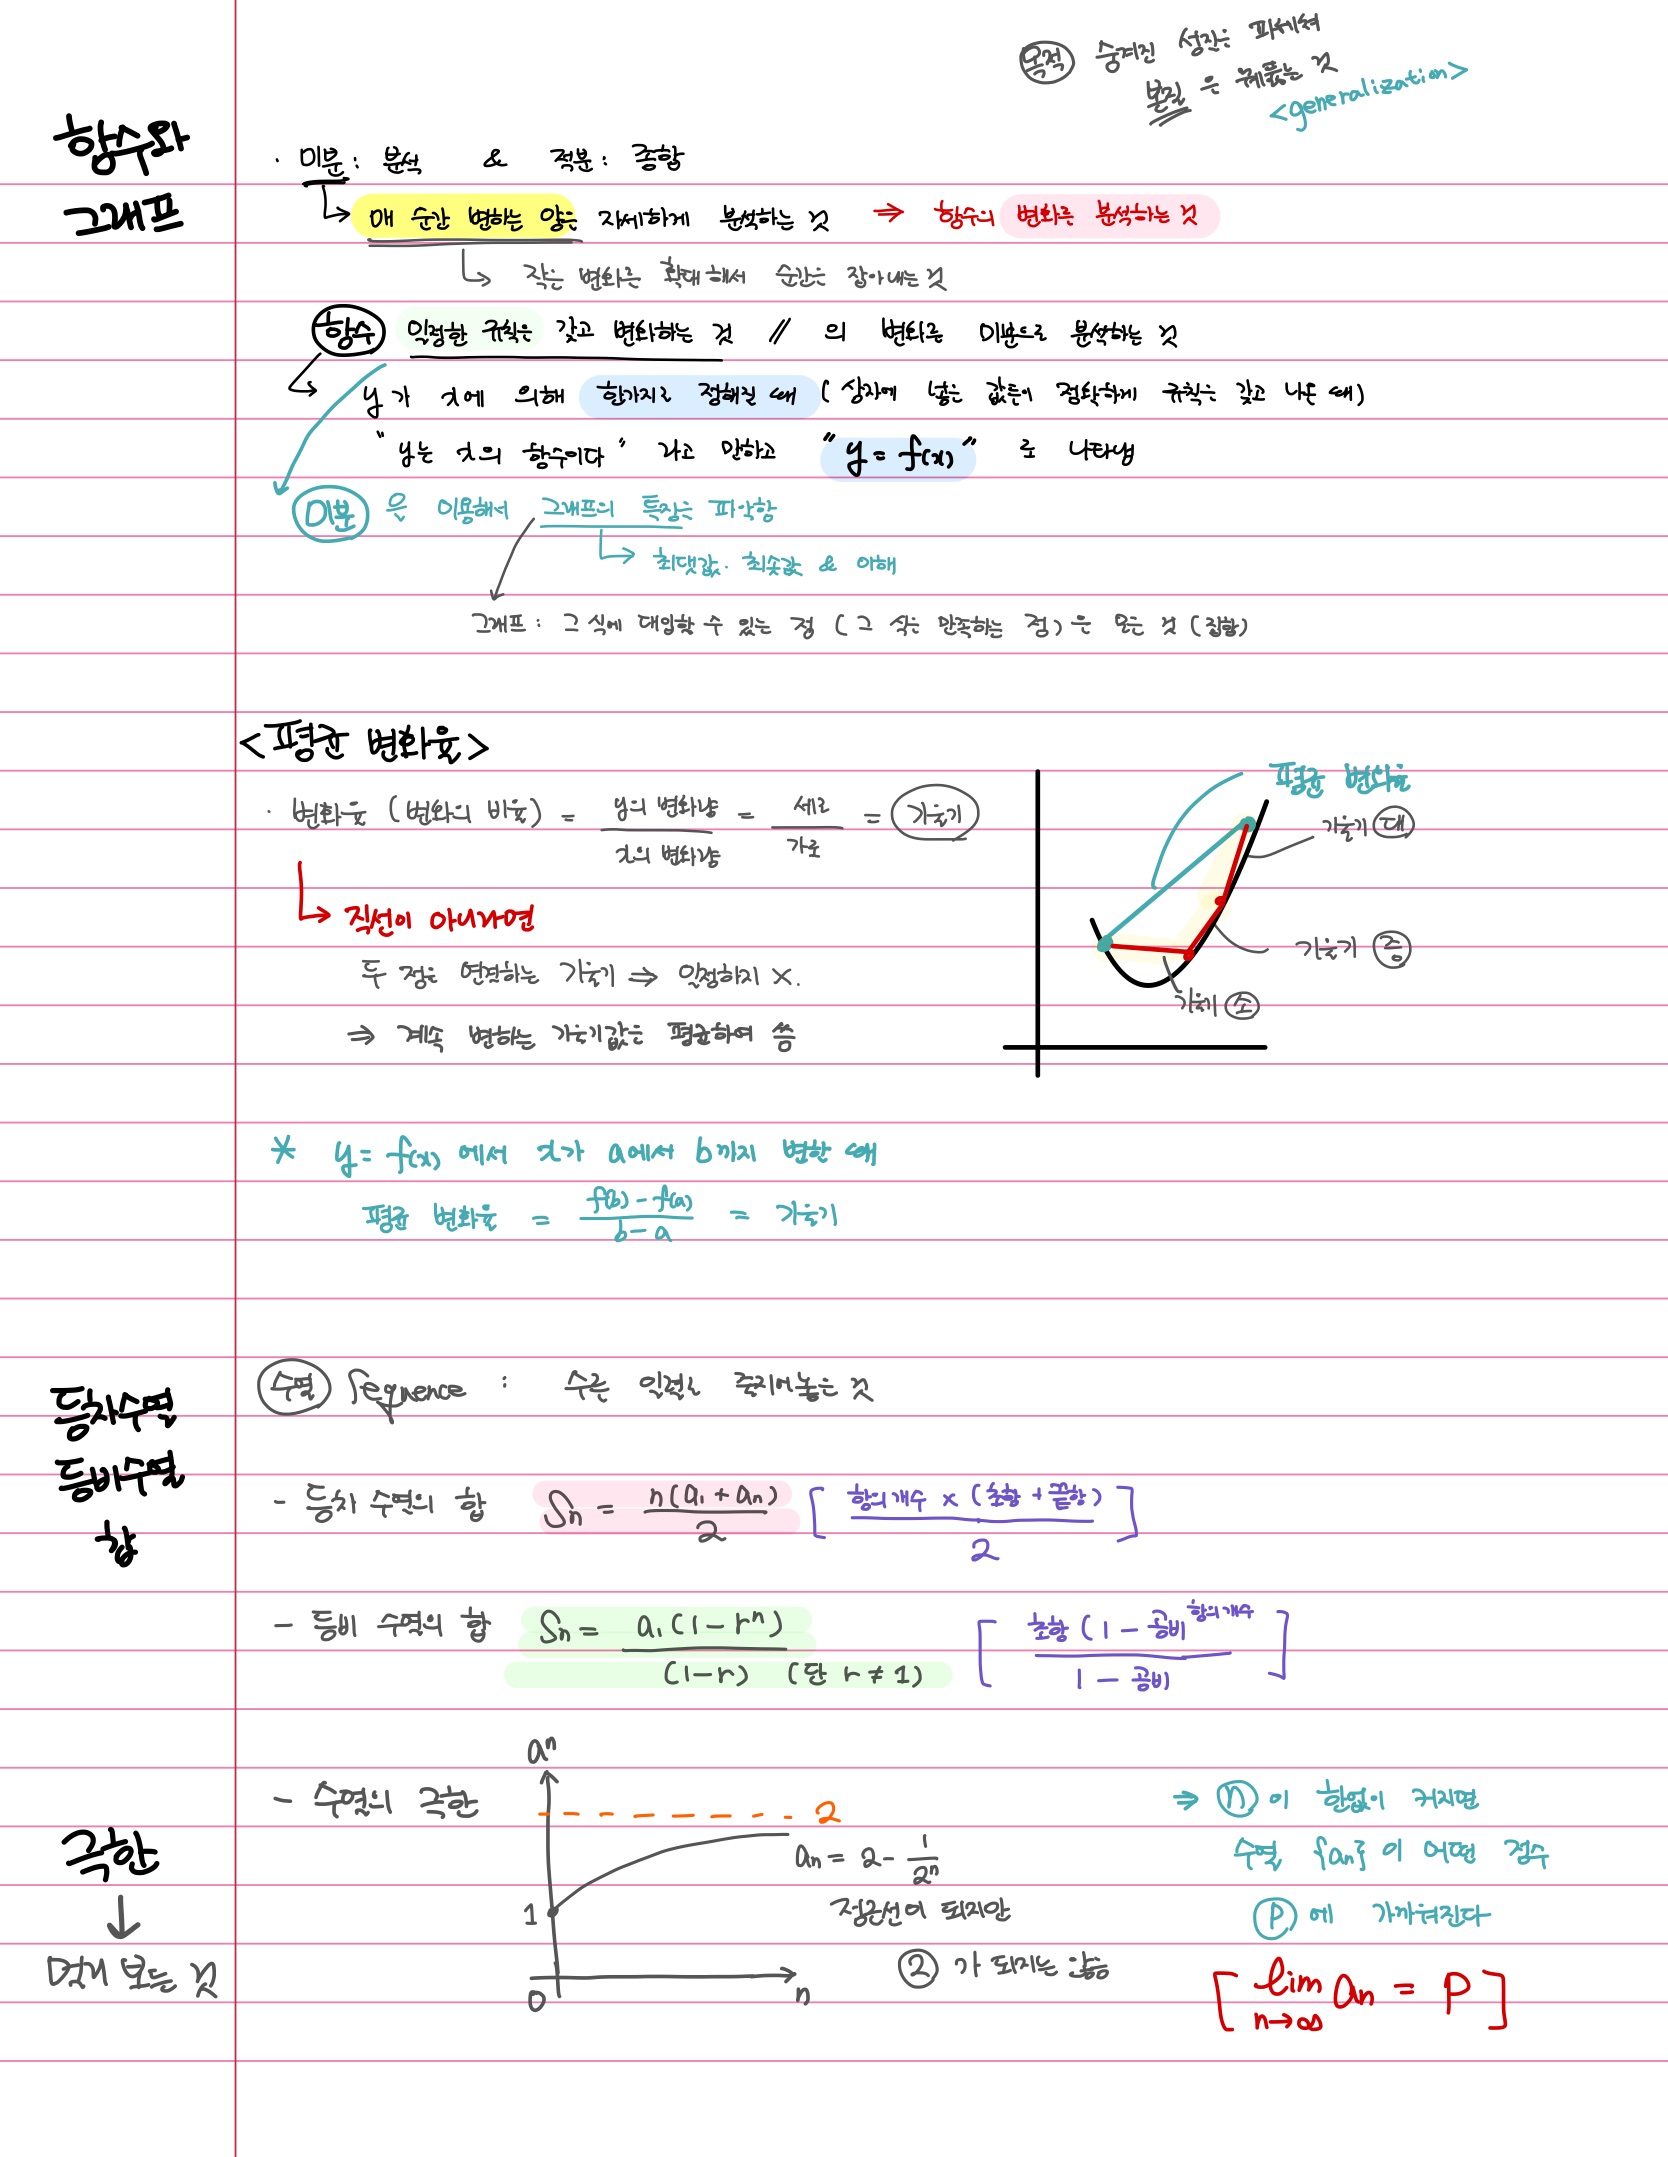 목적 숨겨진 성질을 파헤쳐
본질을 꿰뚫는 것
<generalization>
함수와
그래프
· 미분 : 분석 & 적분 : 종합
매 순간 변하는 양을 자세하게 분석하는 것 ⇒ 함수의 변화를 분석하는 것
작은 변화를 확대해서 순간을 잡아내는 것
함수 일정한 규칙을 갖고 변화하는 것 // 의 변화를 미분으로 분석하는 것
y가 x에 의해 한가지로 정해질 때 (상자에 넣은 값들이 정확하게 규칙을 갖고 나올 때)
"y는 x의 함수이다" 라고 말하고 "y = f(x)" 로 나타냄
미분 을 이용해서 그래프의 특징을 파악함
최댓값. 최솟값 & 이해
그래프 : 그 식에 대입할 수 있는 점 (그 식을 만족하는 점)을 모은 것 (집합)
<평균 변화율>
· 변화율 (변화의 비율) = y의 변화량 / x의 변화량 = 세로 / 가로 = 기울기
직선이 아니라면
두 점을 연결하는 기울기 ⇒ 일정하지 X.
⇒ 계속 변하는 기울기값을 평균하여 씀
평균 변화율
기울기 대
기울기 중
기울기 소
* y = f(x) 에서 x가 a에서 b까지 변할 때
평균 변화율 = f(b) - f(a) / b - a = 기울기
등차수열
등비수열
합
수열 Sequence : 수를 일렬로 줄지어놓은 것
- 등차 수열의 합 Sn = n(a₁ + an) / 2 [ 항의개수 × (초항 + 끝항) / 2 ]
- 등비 수열의 합 Sn = a₁(1 - rⁿ) / (1-r) (단 r ≠ 1) [ 초항 (1 - 공비^항의개수 / 1 - 공비 ]
극한
↓
멀리 보는 것
- 수열의 극한
aⁿ
2
1
0
n
an = 2 - 1/2ⁿ
점근선이 되지만
2 가 되지는 않음
⇒ n 이 한없이 커지면
수열 {an} 이 어떤 점수
P 에 가까워진다
[ lim n→∞ an = P ]